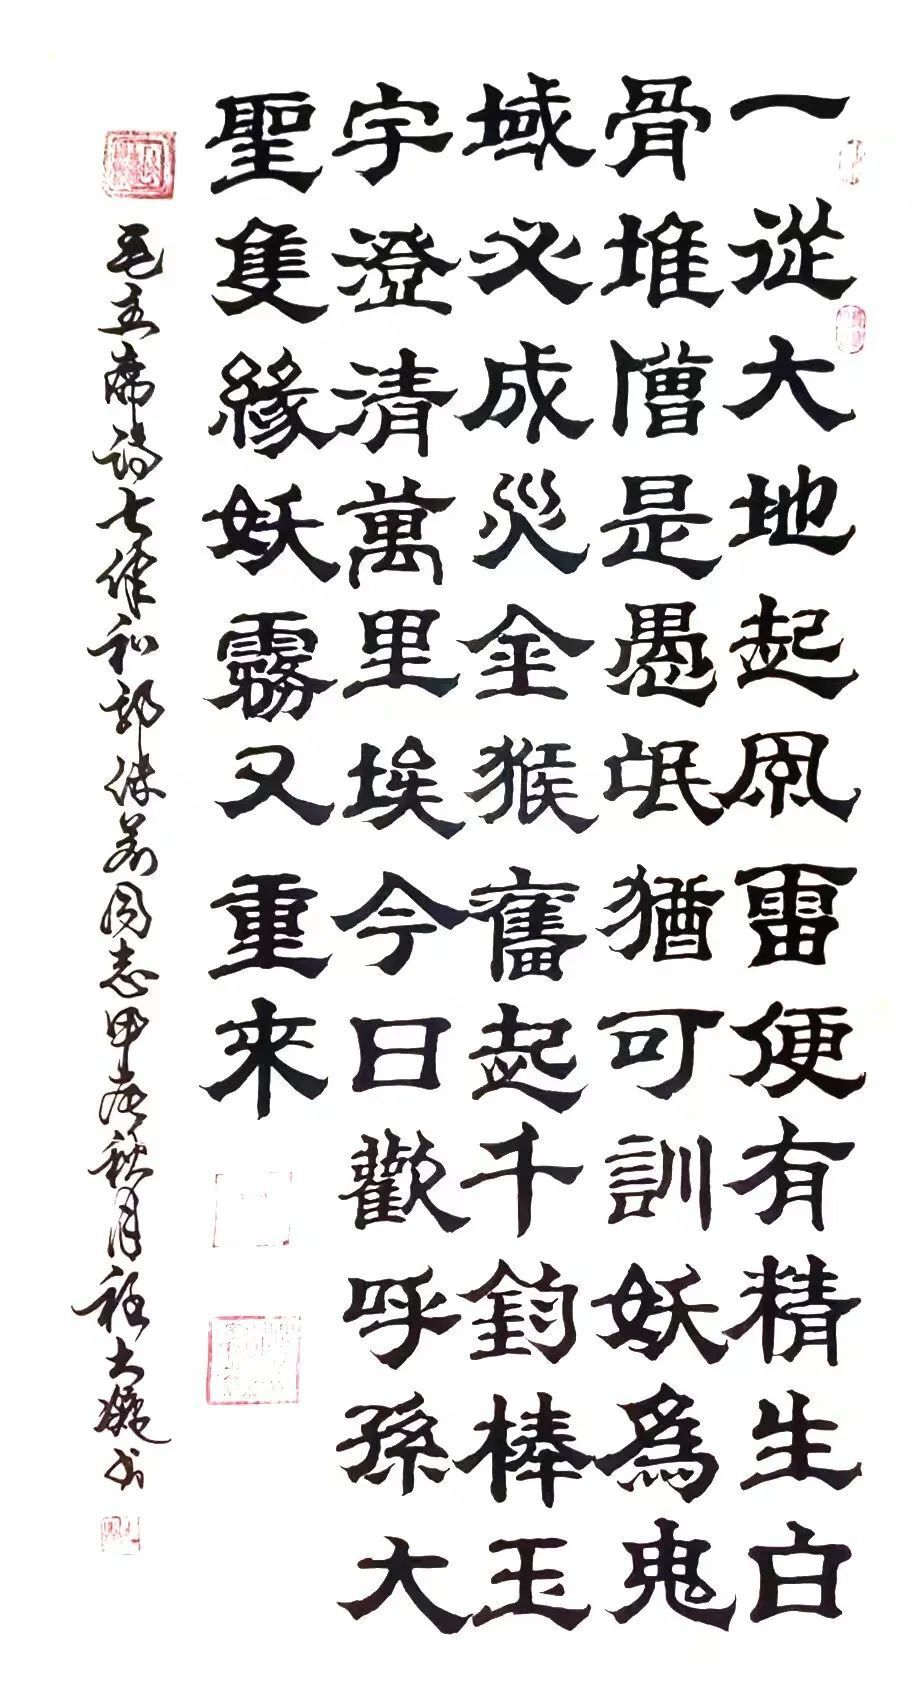 一從大地起風雷便有精生白
骨堆僧是愚氓猶可訓妖為鬼
域必成災金猴奮起千鈞棒玉
宇澄清萬里埃今日歡呼孫大
聖隻緣妖霧又重來
毛主席詩七律和郭沫若同志甲辰秋月程大巍書